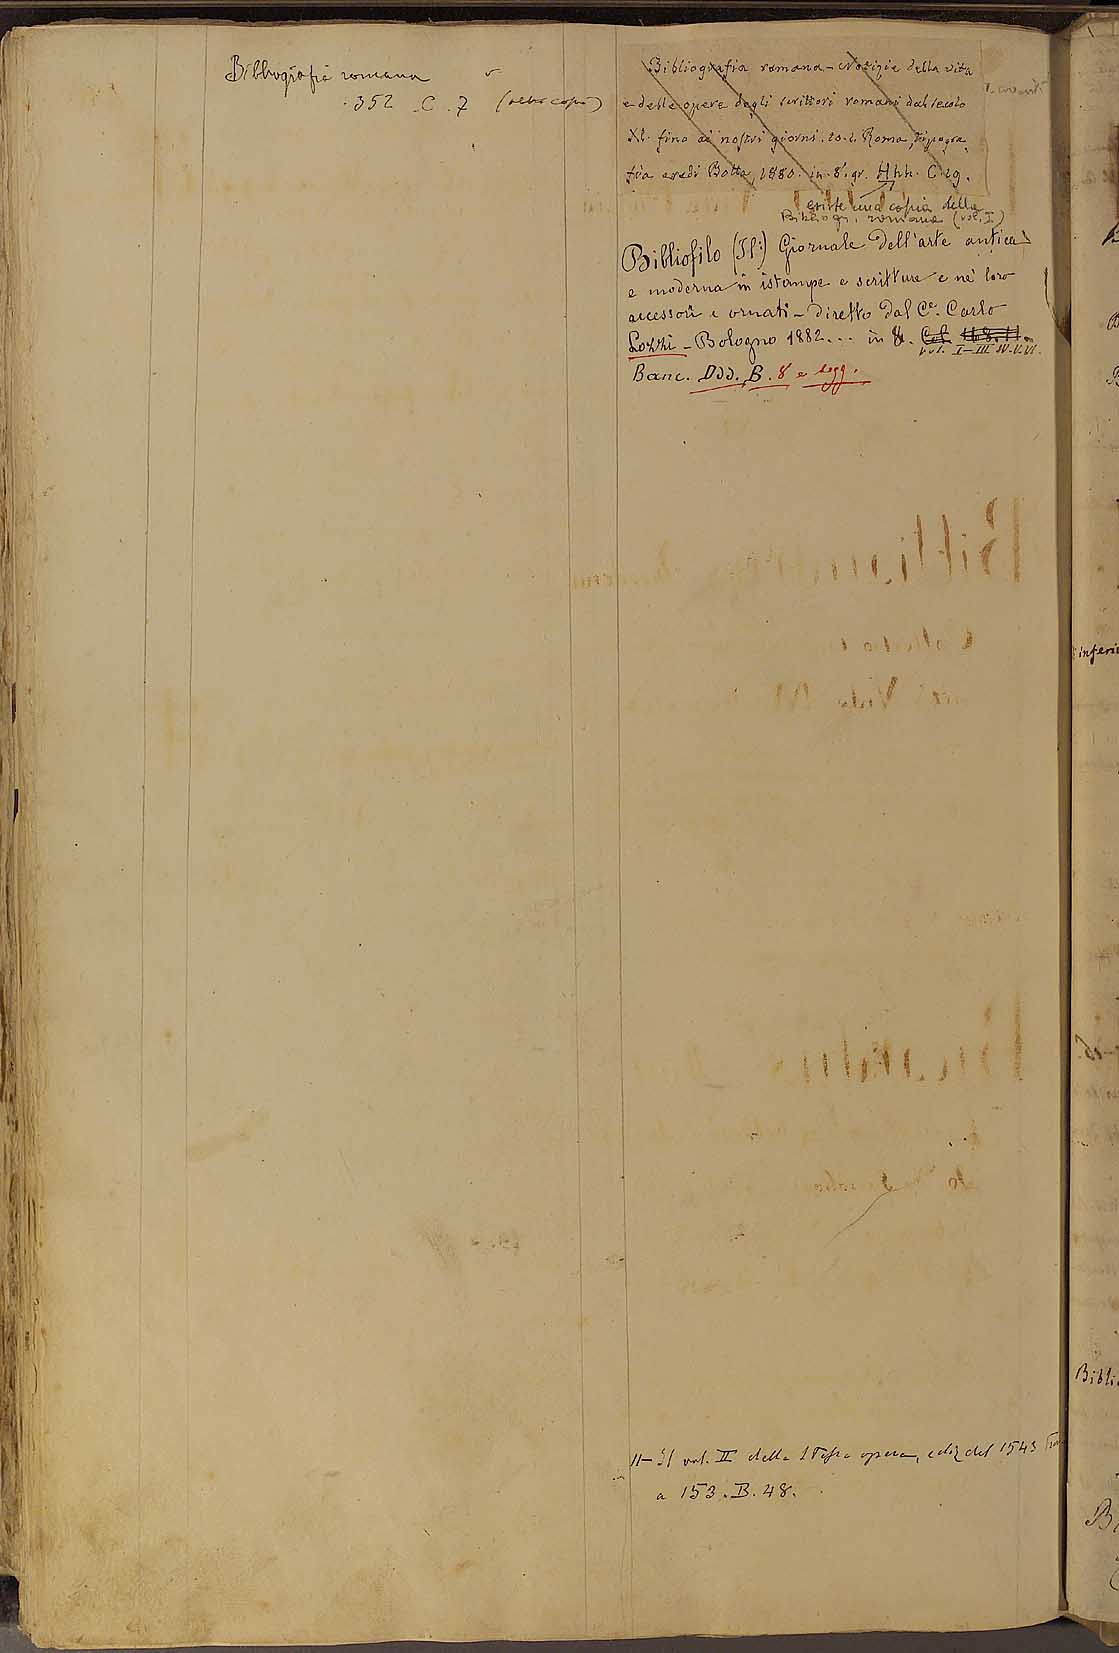 Bibliografia romana
352 . C . 7 (altra copia)
Bibliografia romana - Notizie della vita
e delle opere degli scrittori romani dal secolo
XI. fino ai nostri giorni. to. 1. Roma, tipogra-
fia eredi Botta, 1880. in 8. gr. Hhh. C. 29.
esiste una copia della
Bibliogr. romana (vol. I)
Bibliofilo (Il) Giornale dell'arte antica
e moderna in istampe e scritture e ne' loro
accessori e ornati - diretto dal Ce. Carlo
Lozzi - Bologna 1882... in 8.
vol. I-III IV. V. VI.
Banc. Ddd. B. 8 e segg.
11- Il vol. II della stessa opera, ediz del 1543
a 153. B. 48.